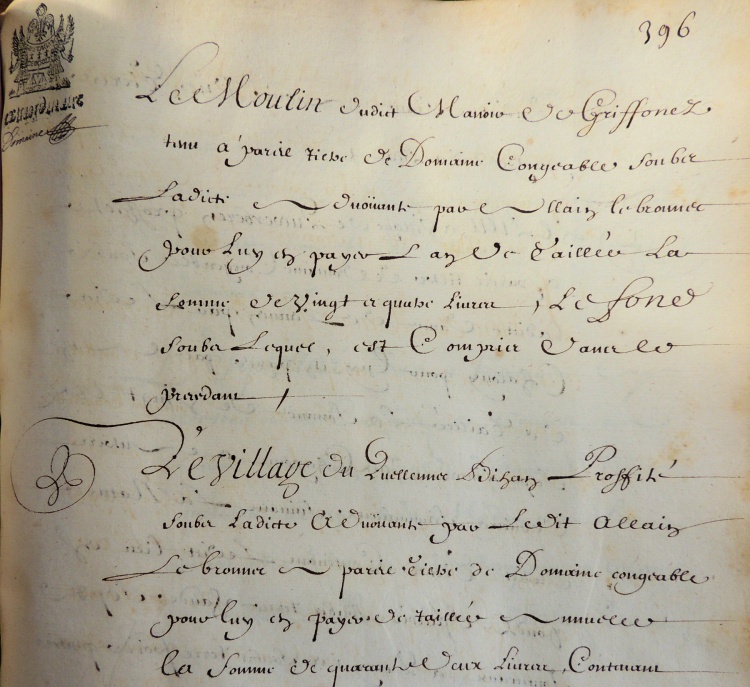 396
Domaine
Le Moulin dudict Manoir de Griffonez
tenu a pareil tiltre de Domaine Congeable soubz
Ladicte advoüante par Allain le bronnec
pour luy en payer L'an de Taillée La
somme de vingt et quatre livres, Le fond
soubz Lequel, est Compris dans le
precedant
Le Village du Quellennec Proffité
soubz Ladicte Advoüante par Ledit Allain
Le bronnec a pareil tiltre de Domaine congeable
pour luy en payer de taillée Annuelle
la somme de quarante deux livres, Contenant